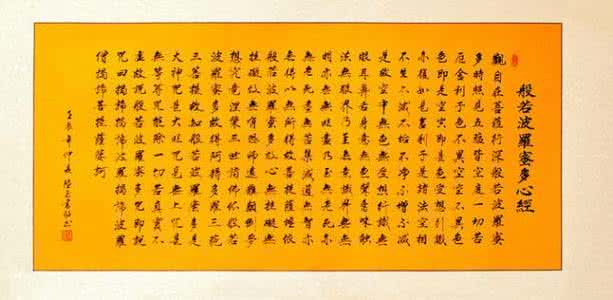 般若波羅蜜多心經
觀自在菩薩行深般若波羅蜜
多時照見五蘊皆空度一切苦
厄舍利子色不異空空不異色
色即是空空即是色受想行識
亦復如是舍利子是諸法空相
不生不滅不垢不淨不增不減
是故空中無色無受想行識無
眼耳鼻舌身意無色聲香味觸
法無眼界乃至無意識界無無
明亦無無明盡乃至無老死亦
無老死盡無苦集滅道無智亦
無得以無所得故菩提薩埵依
般若波羅蜜多故心無掛礙無
掛礙故無有恐怖遠離顛倒夢
想究竟涅槃三世諸佛依般若
波羅蜜多故得阿耨多羅三藐
三菩提故知般若波羅蜜多是
大神咒是大明咒是無上咒是
無等等咒能除一切苦真實不
虛故說般若波羅蜜多咒即說
咒曰揭諦揭諦波羅揭諦波羅
僧揭諦菩提薩婆訶
壬辰年仲夏